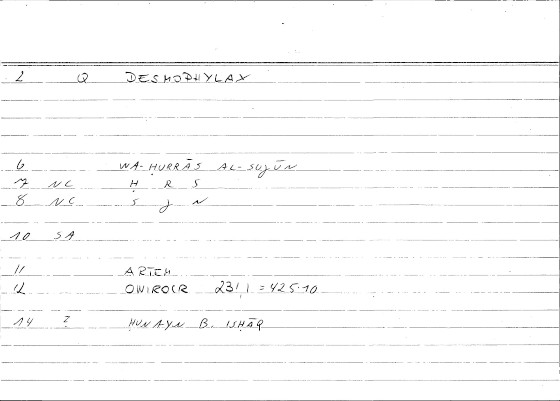 2 Q DESMOPHYLAX
6 WA-ḤURRĀS AL-SUǧŪN
7 NC Ḥ R S
8 NC S ǧ N
10 SA
11 ARTEM
12 ONIROCR 231,1 = 425.10
14 2 ḤUNAYN B. ISḤĀQ